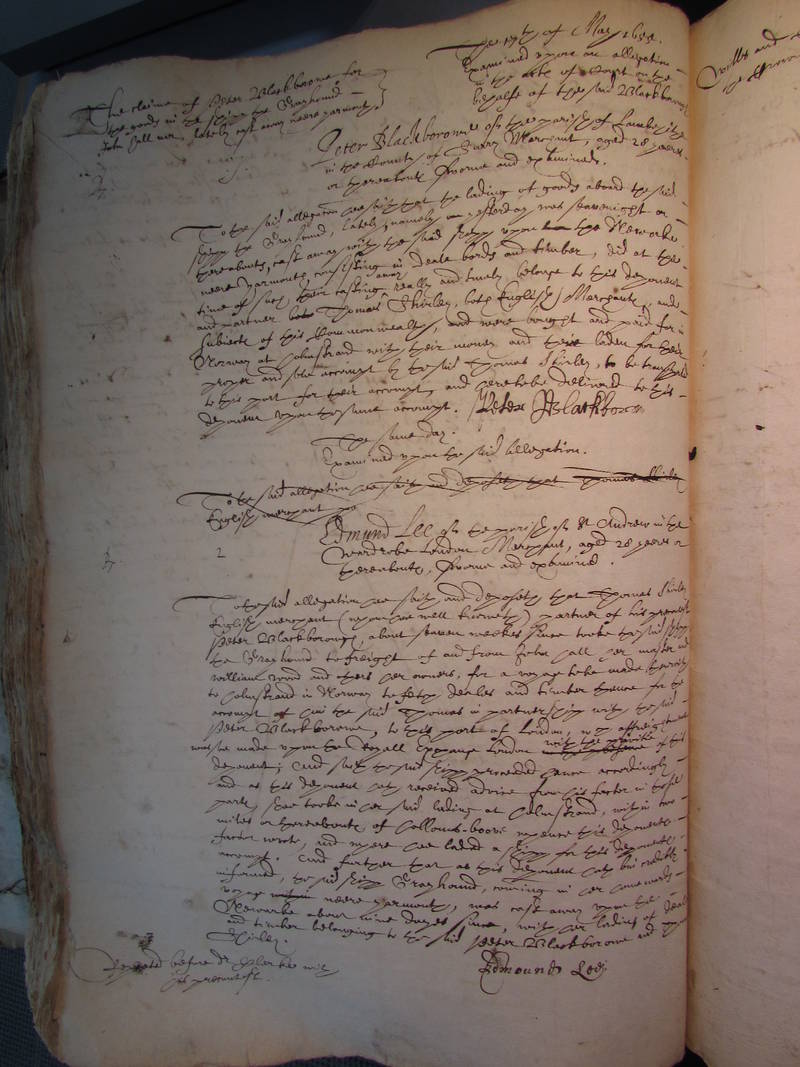 The 17th of May 1655.
Examined upon an allegation
in the Acts of Court on the
behalfe of the said Blackborow
The claime of Peter Blackborowe for
the goods in the shipp the Grayhound
John Hall mr. lately cast away neere yarmouth.
Peter Blackborowe of the parish of Lambeth
in the County of Surry Merchant, aged 28 yeeres
or thereabouts sworne and examined.
To the said allegation hee saith that the lading of goods aboard the said
shipp the Grayhound, lately, namely on was seavenight or
thereabouts, cast away with the said shipp upon the Newarke
neere yarmouth, consisting in deale bords and timber, did at the
time of such their casting away really and truely belonge to this deponent
and partner Thomas Shirley, both English Merchants, and
subiects of this Commonwealth, and were bought and paid for in
Norway at with their money and there laden for their
proper and sole accompt by the said Thomas Shirley, to be transported
to this port for their accompt, and here to be delivered to this
deponent upon the same accompt. Peter Blackborow
The same day.
Examined upon the said allegation.
To the said allegation hee saith and deposeth that Thomas Shirley
English merchant
Edmund Lee of the parish of St Andrew in the
Wardrobe London Merchant, aged 28 yeeres or
thereabouts, sworne and examined.
2
To the said allegation hee saith and deposeth that Thomas Shirley
English merchant (whom hee well knoweth) partner of his
Peter Blackborough, about seaven weekes since tooke the said shipp
the Grayhound to freight of and from John Hall her master and
William Wood and others her owners, for a voyage to be made therewith
to in Norway to fetch deales and timber thence for the
accompt of him the said Thomas in partnershipp with the said
Peter Blackborowe, to this port of London, which affreightment
was soe made upon the Royall Exchange London of this
deponent; And saith the said shipp proceeded hence accordingly
and as this deponent hath received advise from his factor in those
parts, shee tooke in her said lading at within two
miles or thereabouts of whence this deponents
factor wrote, and where hee laded a shipp for this deponents
accompt. And further that as this deponent hath bin credibly
informed, the said shipp Grayhound, coming in her homewards
voyage neere yarmouth, was cast away upon the
Newarke about nine dayes since, with her lading of deales
and timber belonging to the said Peter Blackborowe and
Shirley.
Repeated before dr Clarke
Edmound Lee